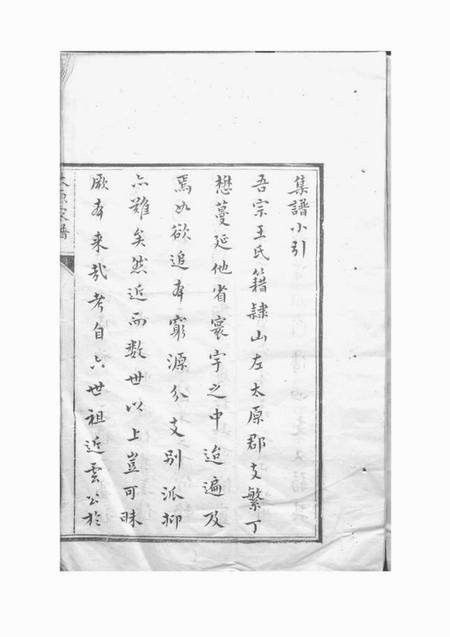 集譜小引
吾宗王氏籍隸山左太原郡支繁丁
懋蔓延他省寰宇之中迨遍及
焉如欲追本窮源分支別派抑
亦難矣然近而数世以上豈可昧
厥本来哉考自六世祖近雲公於